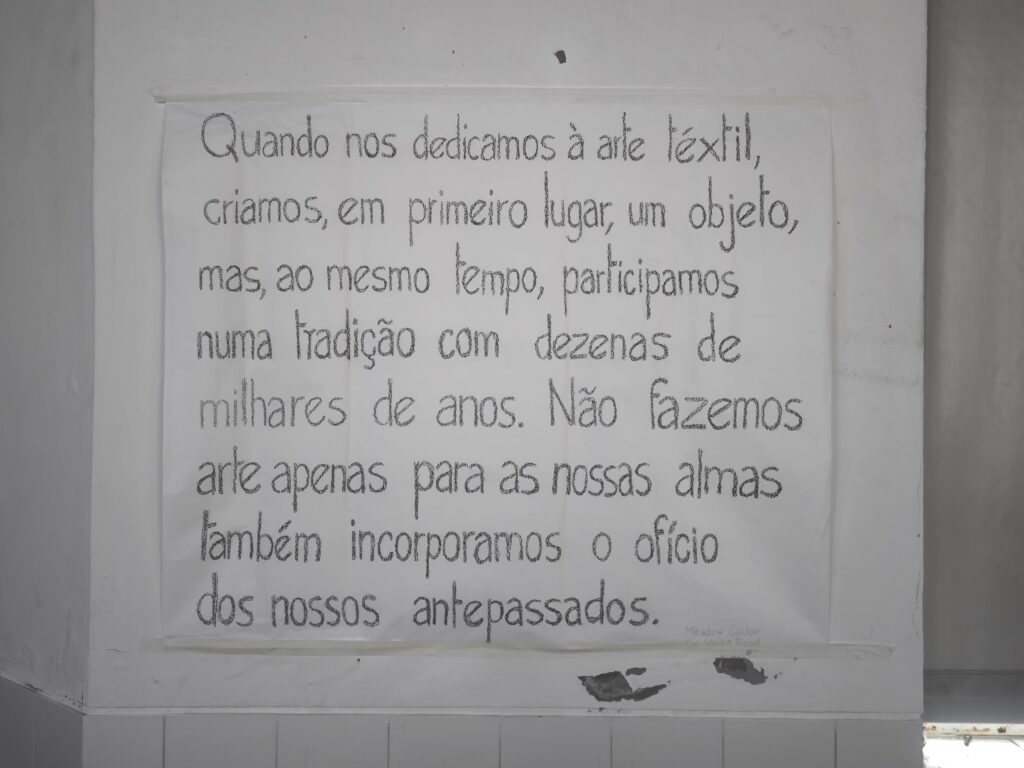 Quando nos dedicamos à arte têxtil,
criamos, em primeiro lugar, um objeto,
mas, ao mesmo tempo, participamos
numa tradição com dezenas de
milhares de anos. Não fazemos
arte apenas para as nossas almas
também incorporamos o ofício
dos nossos antepassados.
Meadow